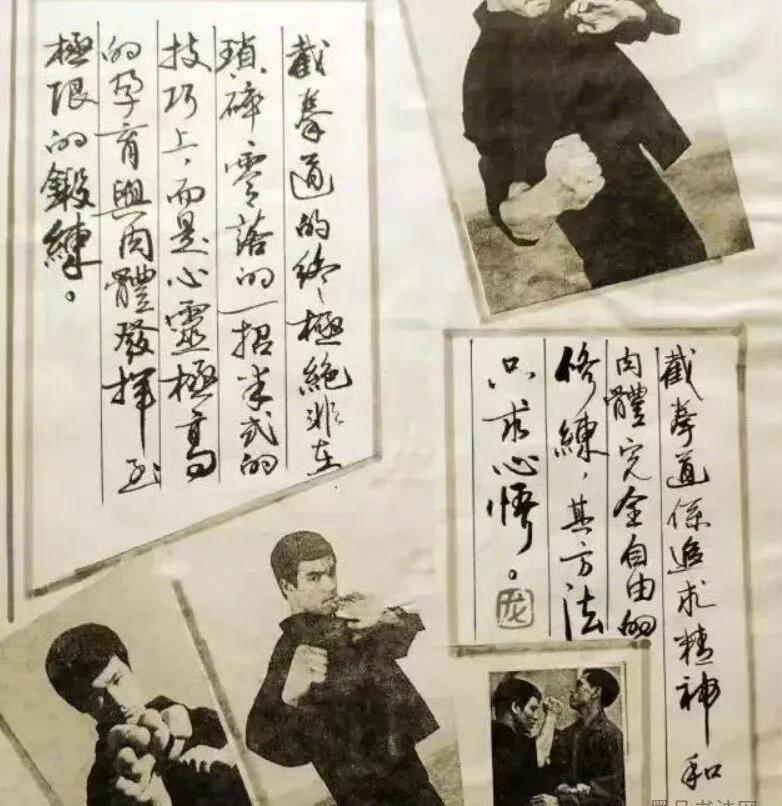 截拳道的終極絕非在
瑣碎零落的一招半式的
技巧上，而是心靈極高
的孕育與肉體發揮至
極限的鍛練。
截拳道係追求精神和
肉體完全自由的
修練，其方法
只求心悟。
龙